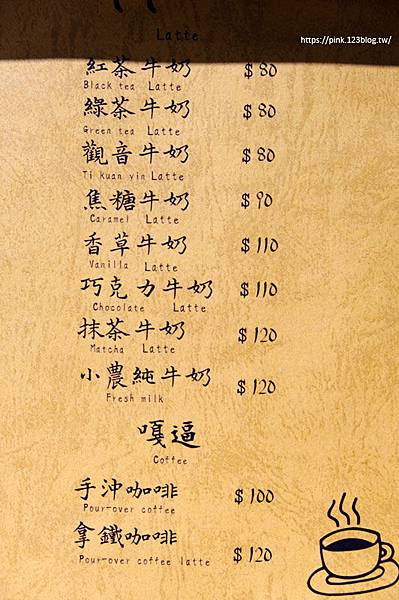 https://pink.123blog.tw/
Latte
紅茶牛奶 $80
Black tea Latte
綠茶牛奶 $80
Green tea Latte
觀音牛奶 $80
Ti kuan yin Latte
焦糖牛奶 $90
Caramel Latte
香草牛奶 $110
Vanilla Latte
巧克力牛奶 $110
Chocolate Latte
抹茶牛奶 $120
Matcha Latte
小農純牛奶 $120
Fresh milk
嘎逼
Coffee
手沖咖啡 $100
Pour-over coffee
拿鐵咖啡 $120
Pour-over coffee latte